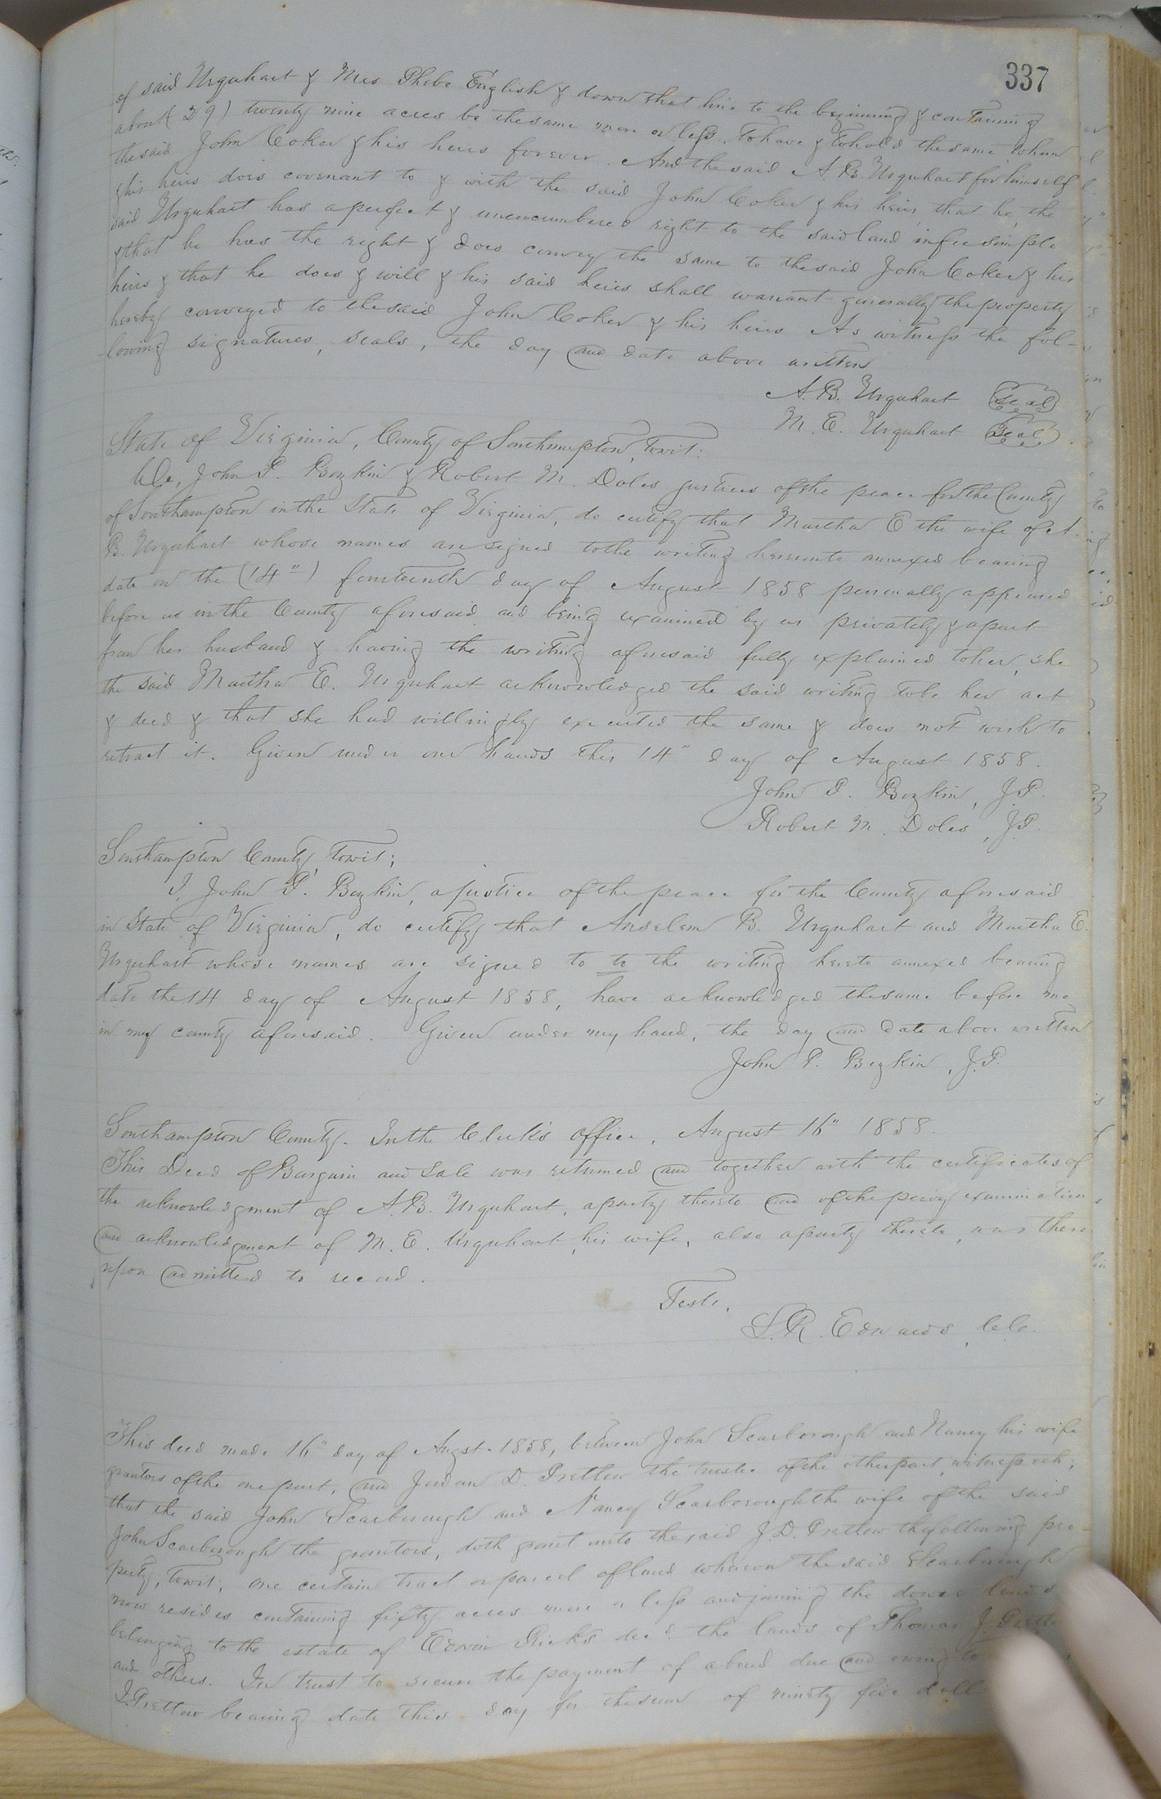 337
of said Urquhart & Mrs Phebe English & down that line to the beginning & containing
about (29) twenty nine acres be the same more or less. To have & to hold the same to him
the said John Coker & his heirs forever. And the said A B Urquhart for himself
& his heirs does covenant to & with the said John Coker & his heirs, that he, the
said Urquhart has a perfect & unencumbered right to the said land in fee simple
& that he has the right & does convey the same to the said John Coker & his
heirs & that he does & will & his said heirs shall warrant generally the property
hereby conveyed to the said John Coker & his heirs As witness the fol-
lowing signatures, seals, the day and date above written
A. B. Urquhart Seal
M. E. Urquhart Seal
State of Virginia, County of Southampton, towit:
We, John P. Bozkin & Robert M. Doles justices of the peace for the County
of Southampton in the State of Virginia, do certify that Martha E the wife of A.
B. Urquhart whose names are signed to the writing hereunto annexed bearing
date on the (14") fourteenth day of August 1858 personally appeared
before us in the County aforesaid and being examined by us privately & apart
from her husband & having the writing aforesaid fully explained to her, she
the said Martha E. Urquhart acknowledged the said writing to be her act
& deed & that she had willingly executed the same & does not wish to
retract it. Given under our hands this 14" day of August 1858.
John P. Bozkin, J.P.
Robert M. Doles, J.P.
Southampton County, towit;
I, John P. Bozkin, a justice of the peace for the County aforesaid
in State of Virginia, do certify that Anselem B. Urquhart and Martha E.
Urquhart whose names are signed to to the writing hereto annexed bearing
date the 14 day of August 1858, have acknowledged the same before me
in my county aforesaid. Given under my hand, the day and date above written
John P. Bozkin, J.P.
Southampton County. In the Clerk's office, August 16" 1858.
This Deed of Bargain and Sale was returned and together with the certificates of
the acknowledgment of A. B. Urquhart, a party thereto and of the privy examination
and acknowledgment of M. E. Urquhart, his wife, also a party thereto, was there
upon admitted to record.
Teste,
L. R. Edwards, C.C.
This deed made 16" day of August 1858, between John Scarborough and Nancy his wife
grantors of the one part, and Jordan D. Pretlow the trustee of the other part, witnesseth;
that the said John Scarborough and Nancy Scarborough the wife of the said
John Scarborough the grantors, doth grant unto the said J. D. Pretlow the following pro-
perty, towit, one certain tract or parcel of land whereon the said Scarborough
now resides containing fifty acres more or less and joining the dower lands
belonging to the estate of Edwin Ricks decd. the lands of Thomas J. Pretlo
and others. In trust to secure the payment of a bond due and owing to
J. Pretlow bearing date this day for the sum of ninety five doll